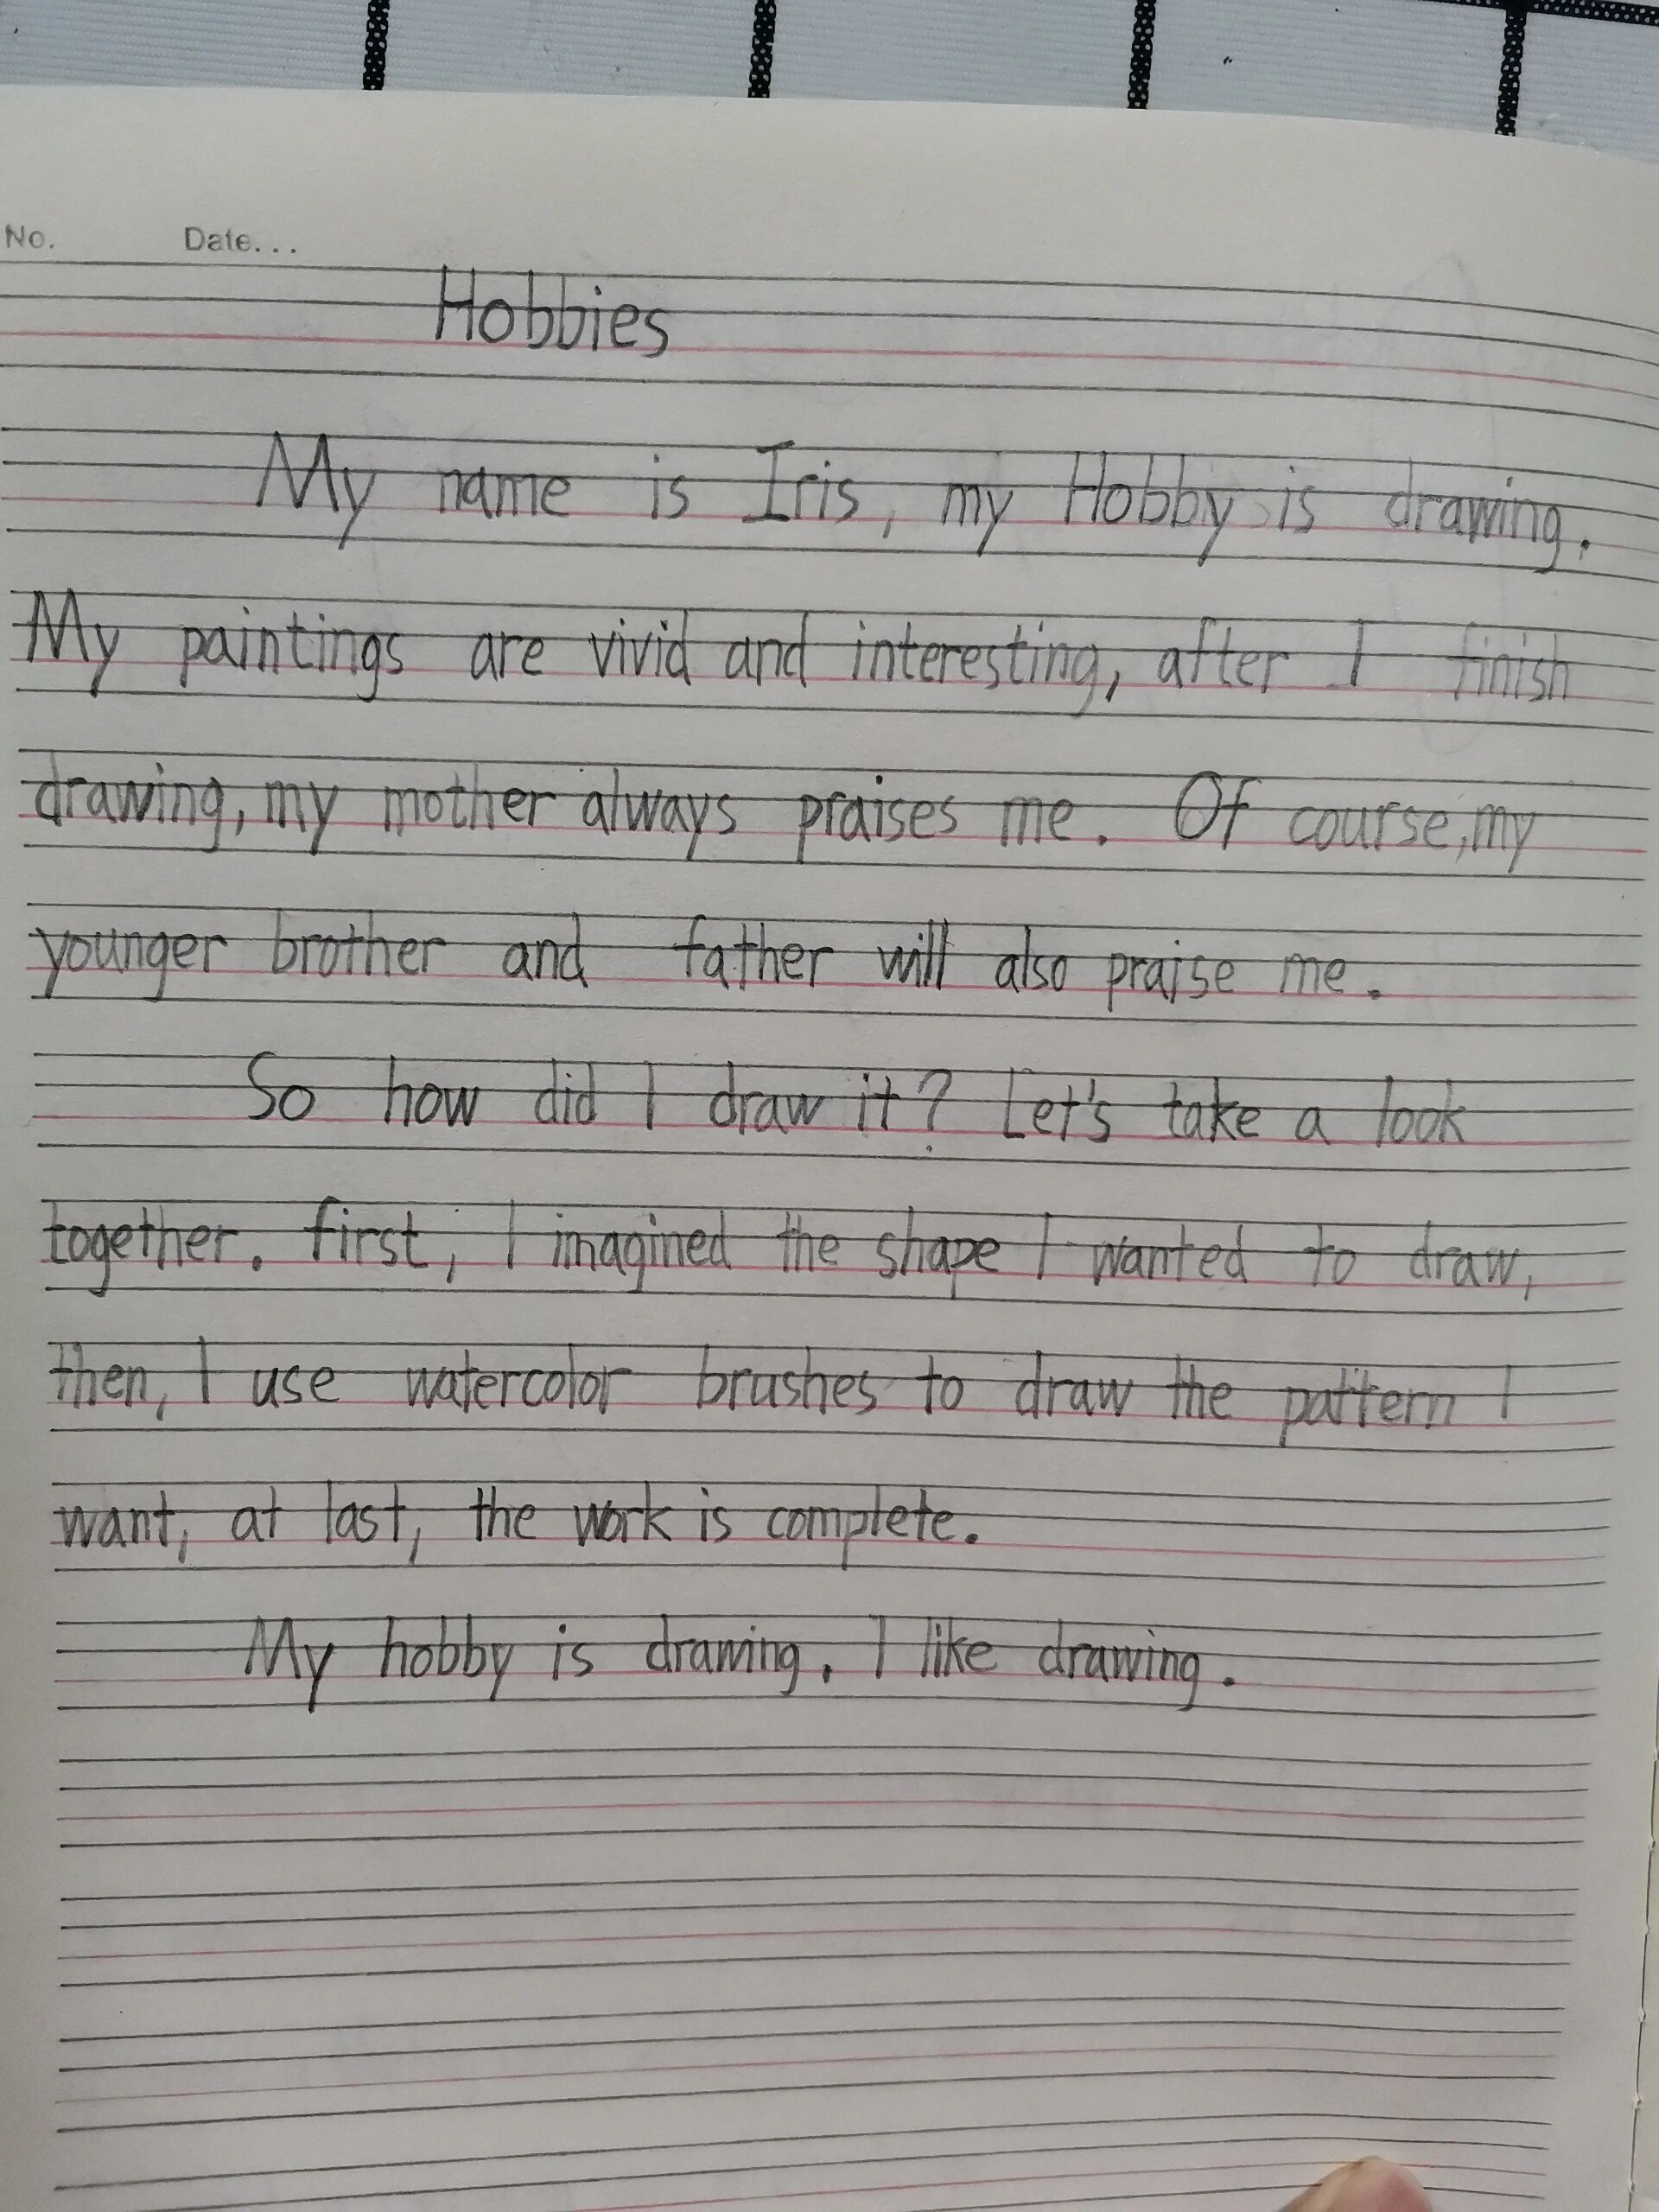 No. Date...
Hobbies
My name is Iris, my Hobby is drawing.
My paintings are vivid and interesting, after I finish
drawing, my mother always praises me. Of course, my
younger brother and father will also praise me.
So how did I draw it? Let's take a look
together. first, I imagined the shape I wanted to draw,
then, I use watercolor brushes to draw the pattern I
want, at last, the work is complete.
My hobby is drawing. I like drawing.